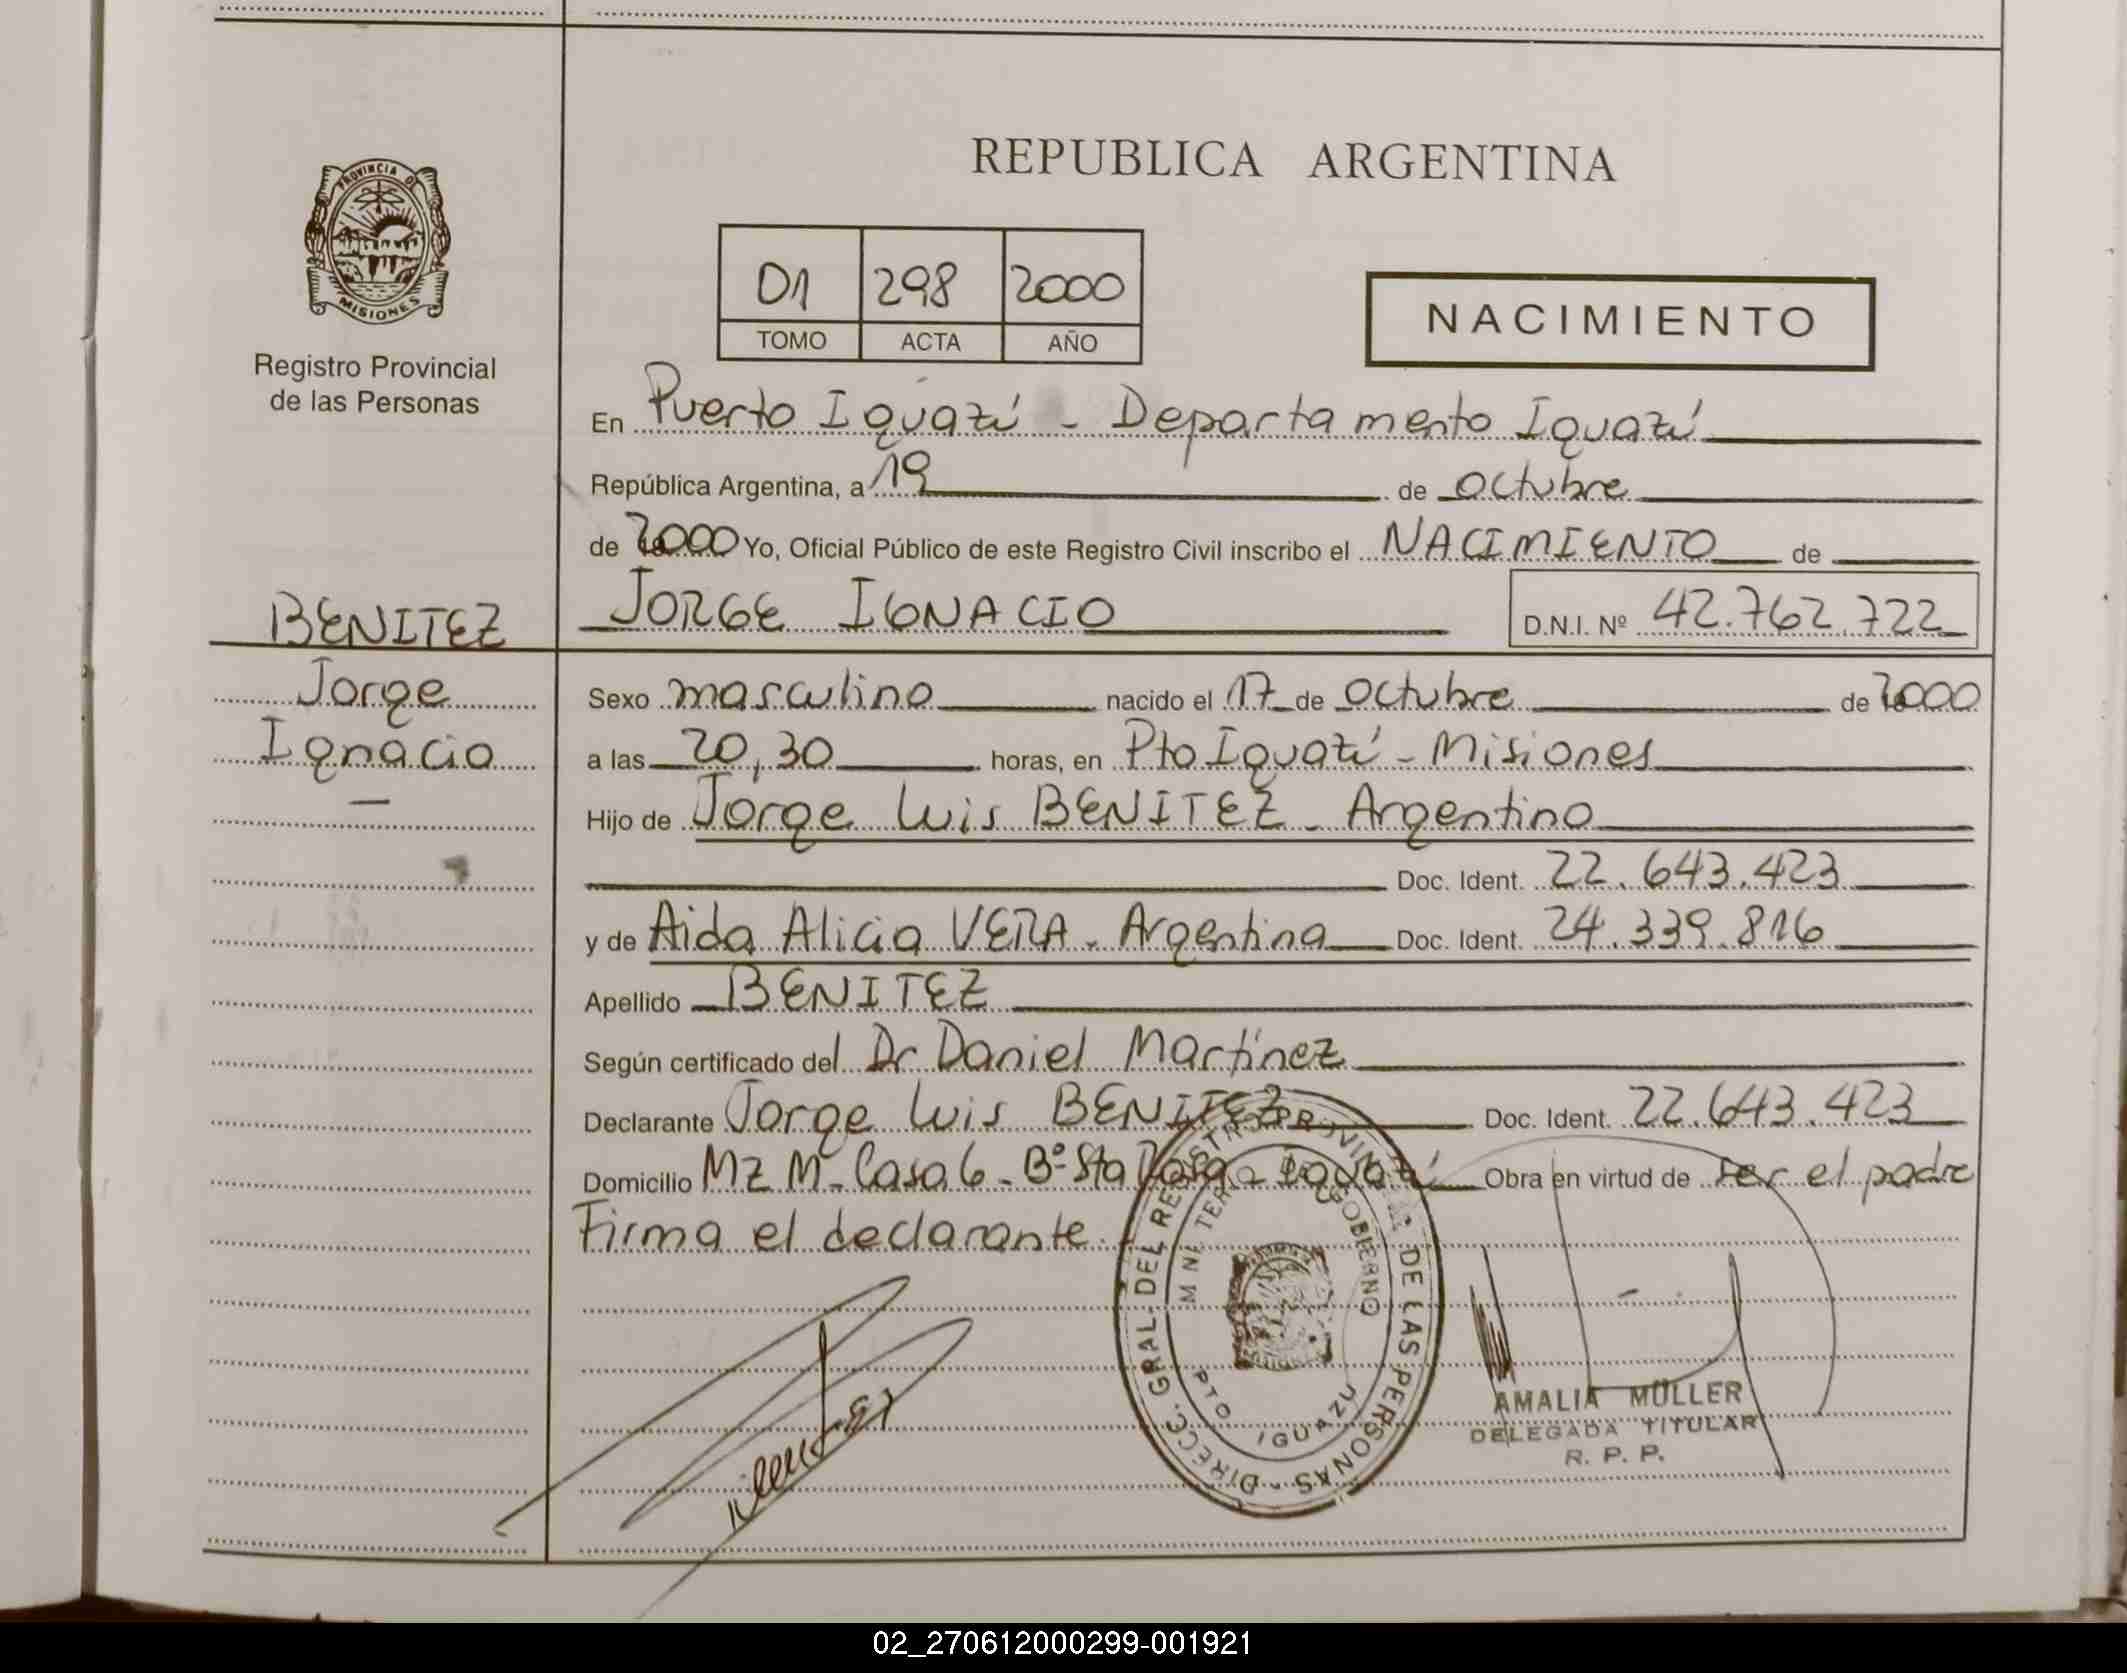 REPUBLICA ARGENTINA
PROVINCIA DE
MISIONES
Registro Provincial
de las Personas
01 298 2000
TOMO ACTA AÑO
NACIMIENTO
En Puerto Iguazú - Departamento Iguazú
República Argentina, a 19 de octubre
de 2000 Yo, Oficial Público de este Registro Civil inscribo el NACIMIENTO de
BENITEZ
JORGE IGNACIO D.N.I. Nº 42.762.722
Jorge
Ignacio
Sexo masculino nacido el 17 de octubre de 2000
a las 20,30 horas, en Pto Iguazú - Misiones
Hijo de Jorge Luis BENITEZ - Argentino
Doc. Ident. 22.643.423
y de Aida Alicia VERA - Argentina Doc. Ident. 24.339.816
Apellido BENITEZ
Según certificado del Dr Daniel Martínez
Declarante Jorge Luis BENITEZ Doc. Ident. 22.643.423
Domicilio MZ M - Casa 6 - Bº Sta Rosa - Iguazú Obra en virtud de ser el padre
Firma el declarante.
DIRECC. GRAL. DEL REGISTRO PROVINCIAL DE LAS PERSONAS -
MINISTERIO DE GOBIERNO
PTO IGUAZU
AMALIA MÜLLER
DELEGADA TITULAR
R. P. P.
02_270612000299-001921